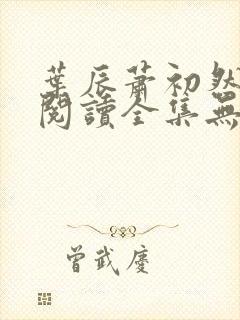 葉辰蕭初然
閱讀全集無
曾武慶